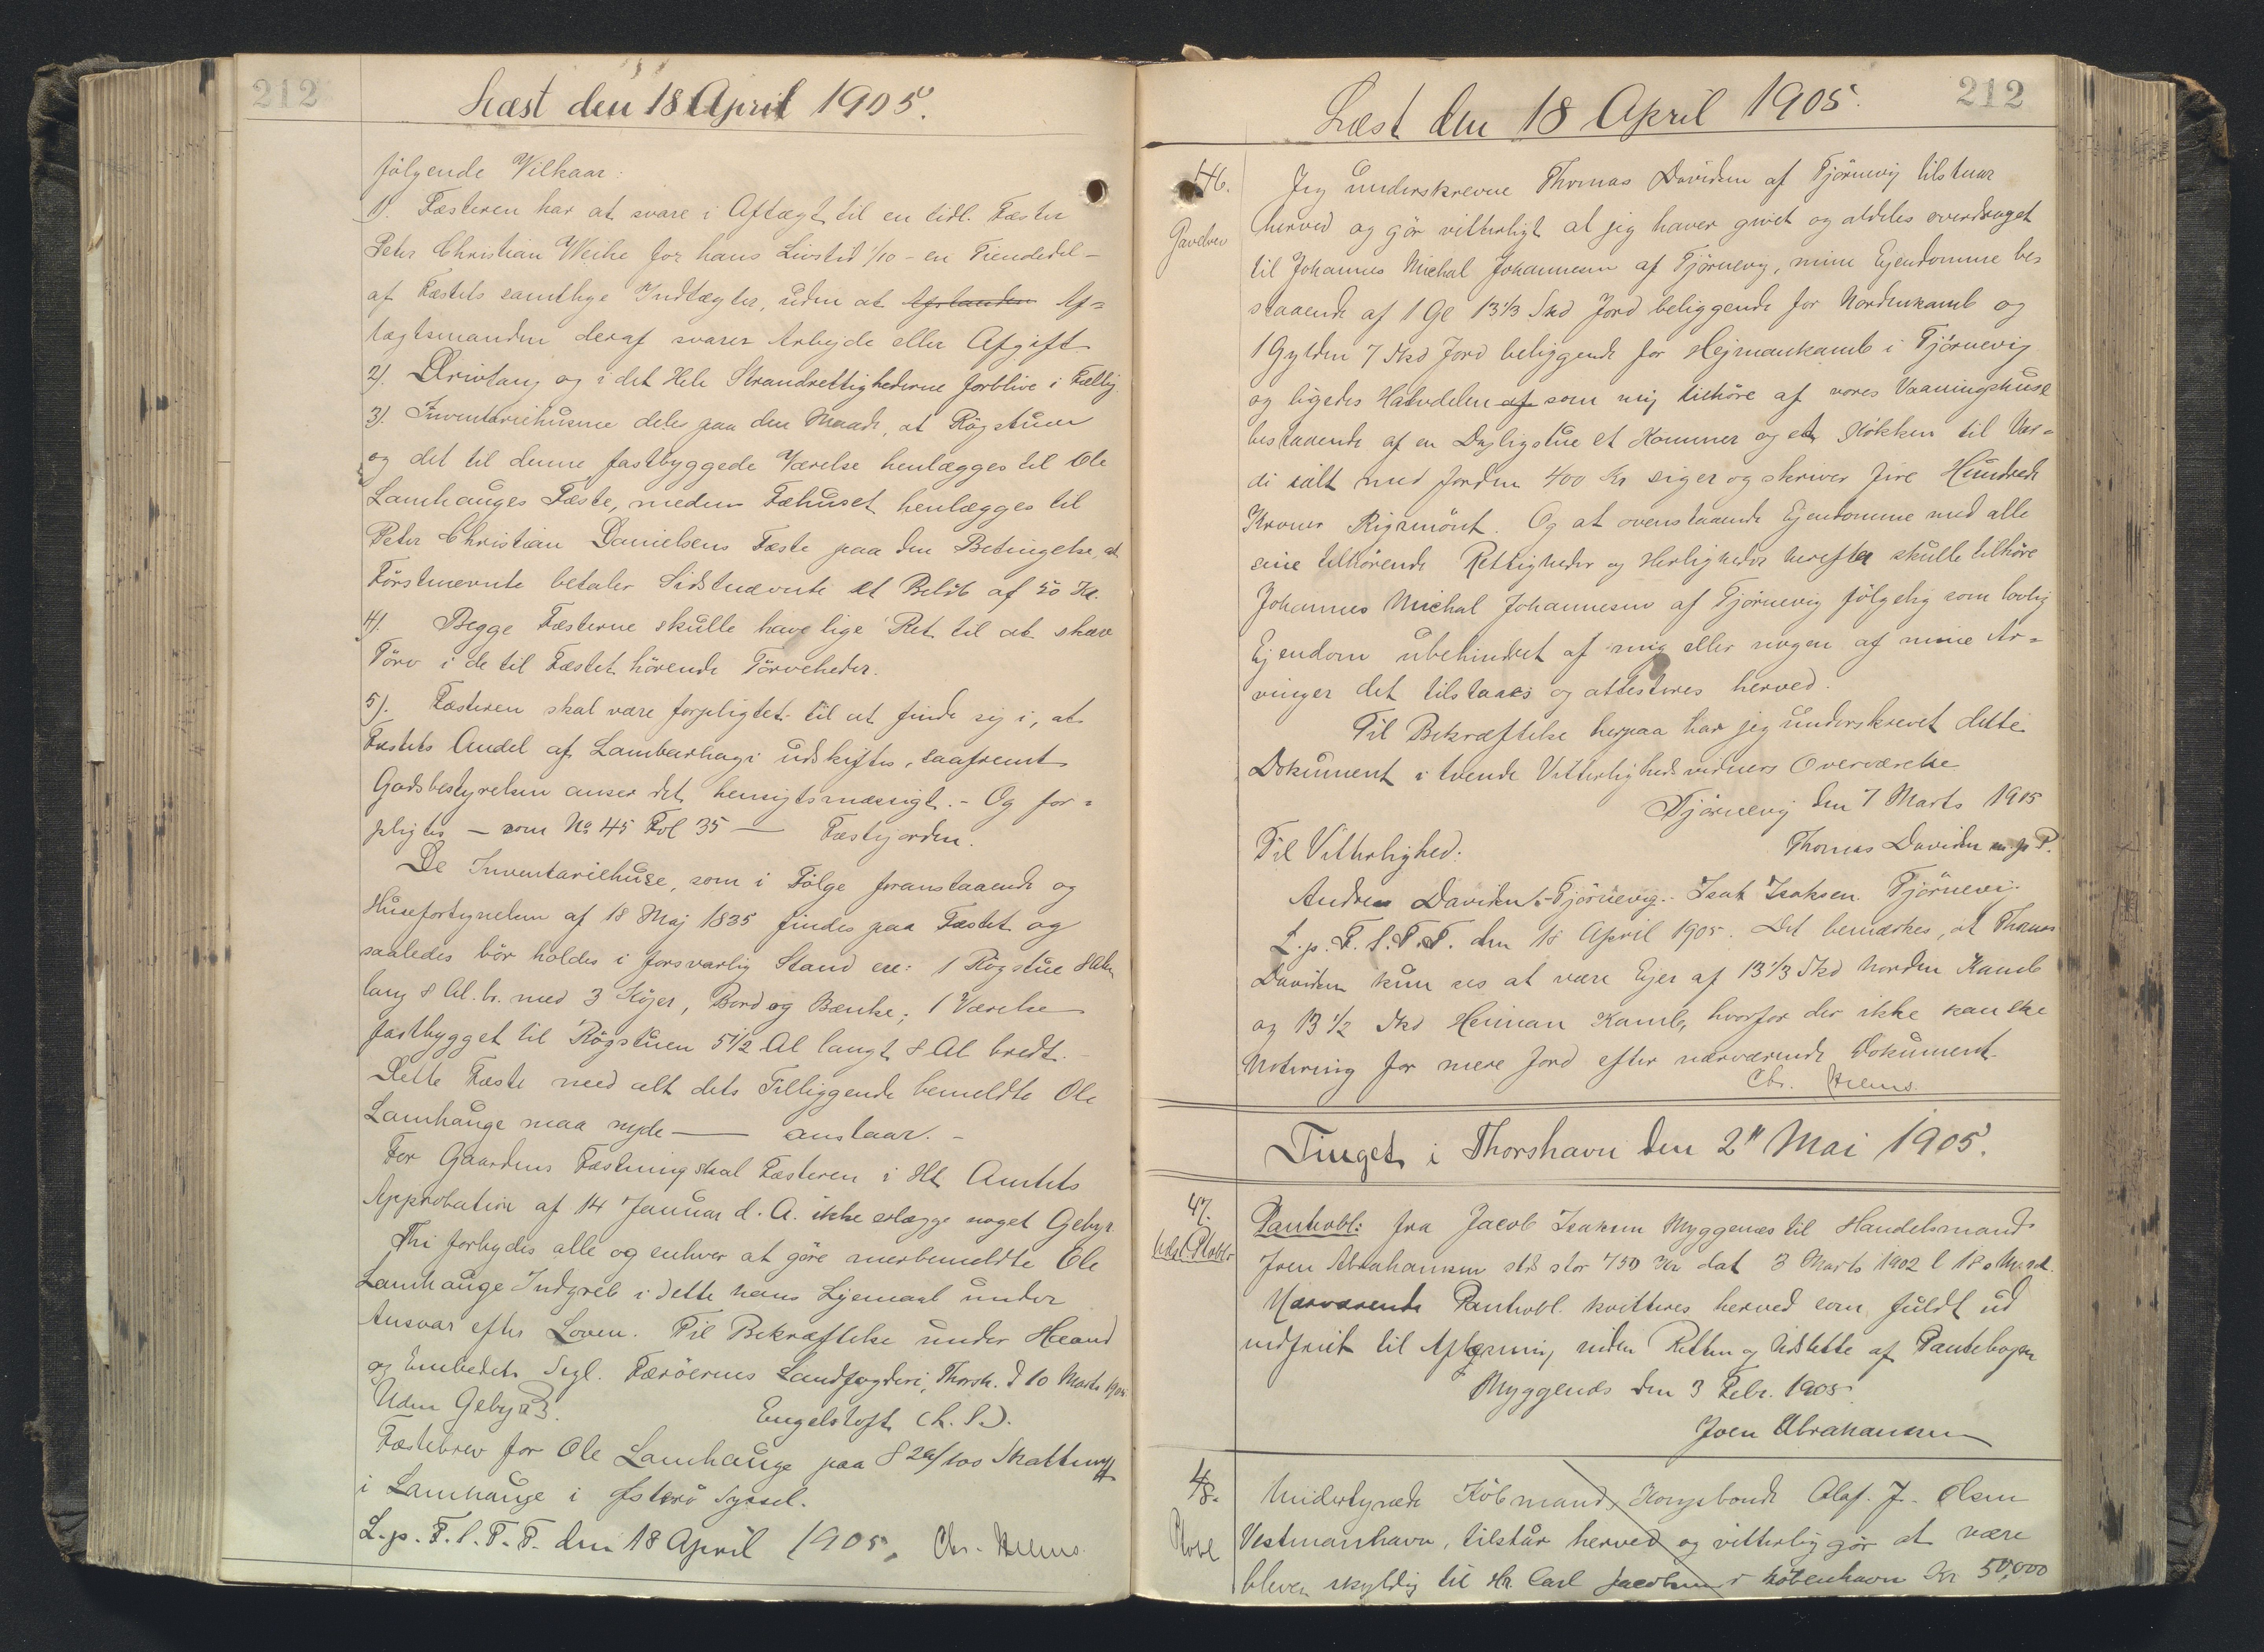 212
Læst den 18 April 1905.
følgende Vilkaar:
1). Fæsteren har at svare i Aftægt til en tidl. Fæster
Peter Christian Weihe for hans Livstid 1/10 - en Tiendedel -
af Fæstets samtlige Indtægter, uden at Af=
tægtsmanden deraf svarer Arbejde eller Afgift
2). Drivtang og i det Hele Strandrettighederne forblive i Fællig.
3). Inventariehusene deles paa den Maade, at Røgstuen
og det til denne fastbyggede Værelse henlægges til Ole
Lamhauges Fæste, medens Fæhuset henlægges til
Peter Christian Danielsens Fæste paa den Betingelse, at
Førstnævnte betaler Sidstnævnte et Beløb af 50 Kr.
4). Begge Fæsterne skulle have lige Ret til at skære
Tørv i de til Fæstet hørende Tørveheder.
5). Fæsteren skal være forpligtet til at finde sig i, at
Fæstets Andel af Lambarhagi udskiftes, saafremt
Godsbestyrelsen anser det hensigtsmæssigt. - Og for=
pligtes - som No 45 Fol 35 - Fæstejorden.
De Inventariehuse, som i Følge foranstaaende og
Husefortegnelsen af 18 Maj 1835 findes paa Fæstet og
saaledes bør holdes i forsvarlig Stand ere: 1 Røgstue 8 Alen
lang 8 Al. br. med 3 Køjer, Bord og Bænke; 1 Værelse
fastbygget til Røgstuen 5 1/2 Al langt 8 Al bredt.-
Dette Fæste med alt dets Tilliggende bemeldte Ole
Lamhauge maa nyde - anstaar. -
For Gaardens Fæstning skal Fæsteren i Hht Amtets
Approbation af 14 Januar d. A. ikke erlægge noget Gebyr.
Thi forbydes alle og enhver at gøre merbemeldte Ole
Lamhauge Indgreb i dette hans Lejemaal under
Ansvar efter Loven. Til Bekræftelse under Haand
og Embedets Segl. Færøernes Landfogderi, Thorsh. d 10 Marts 1905
Uden Gebyr. Engelstoft (L. S.).
Fæstebrev for Ole Lamhauge paa Skattemark
i Lamhauge i Østerø Syssel.
L. p. F. l. T. T. den 18 April 1905. Chr. Helms.
212
Læst den 18 April 1905.
46.
Gavebrev
Jeg underskrevne Thomas Davidsen af Tjørnevig tilstaar
herved og gør vitterligt at jeg haver givet og aldeles overdraget
til Johannes Michal Johannesen af Tjørnevig, mine Ejendomme be=
staaende af 1 Gl 13 1/3 Skd Jord beliggende for Nordenkamb og
1 Gylden 7 Skd Jord beliggende for Hejmankamb i Tjørnevig
og ligedes Halvdelen af som mig tilhøre af vores Vaaningshuse
bestaaende af en Dagligstue et Kammer og et Køkken til Vær=
di ialt med Jorden 400 Kr siger og skriver fire Hundrede
Kroner Rigsmønt. Og at ovenstaaende Ejendomme med alle
sine tilhørende Rettigheder og Herligheder herefter skulle tilhøre
Johannes Michal Johannesen af Tjørnevig følgelig som lovlig
Ejendom ubehindret af mig eller nogen af mine Ar=
vinger det tilstaaes og attesteres herved.
Til Bekræftelse herpaa har jeg underskrevet dette
Dokument i tvende Vitterlighedsvidners Overværelse
Tjørnevig den 7 Marts 1905
Til Vitterlighed: Thomas Davidsen m. p. P.
Andreas Davidsen Tjørnevig. Isak Isaksen Tjørnevig.
L. p. F. l. T. T. den 18 April 1905. Det bemærkes, at Thomas
Davidsen kun ses at være Ejer af 13 1/3 Skd Norden Kamb
og 13 1/2 Skd Heiman Kamb, hvorfor der ikke kan ske
Notering for mere Jord efter nærværende Dokument.
Chr. Helms.
Tinget i Thorshavn den 2n Mai 1905.
47.
Udsl. Ptobl
Pantobl: fra Jacob Isaksen Myggenæs til Handelsmand
Joen Abrahamsen stor 750 Kr dat 3 Marts 1902 l 18 s. M. sd.
Nærværende Pantobl. kvitteres herved som fuldt ud
indfriet til Aflysning inden Retten og Udslettelse af Pantebogen
Myggenæs den 3 Febr. 1905.
Joen Abrahamsen
48.
Ptobl
Undertegnede Købmand, Kongsbonde Olaf. J. Olsen
Vestmanhavn, tilstår herved og vitterlig gør at være
bleven skyldig til Hr. Carl Jacobsen i København Kr 50,000